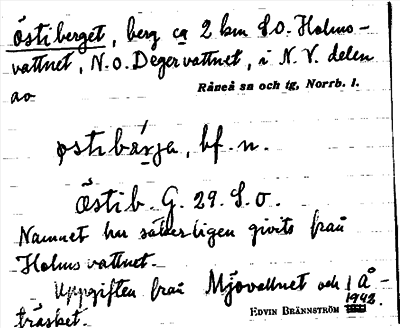 östiberget, berg ca 2 km S.O. Holms-
vattnet, N.O. Degervattnet, i N.V. delen
av
Råneå sn och tg, Norrb. l.
östibärja, bf. n.
Östib. G. 29. S.O.
Namnet har säkerligen givits från
Holmsvattnet.
Uppgiften från Mjövattnet och Å-
träsket.
EDVIN BRÄNNSTRÖM 1942.